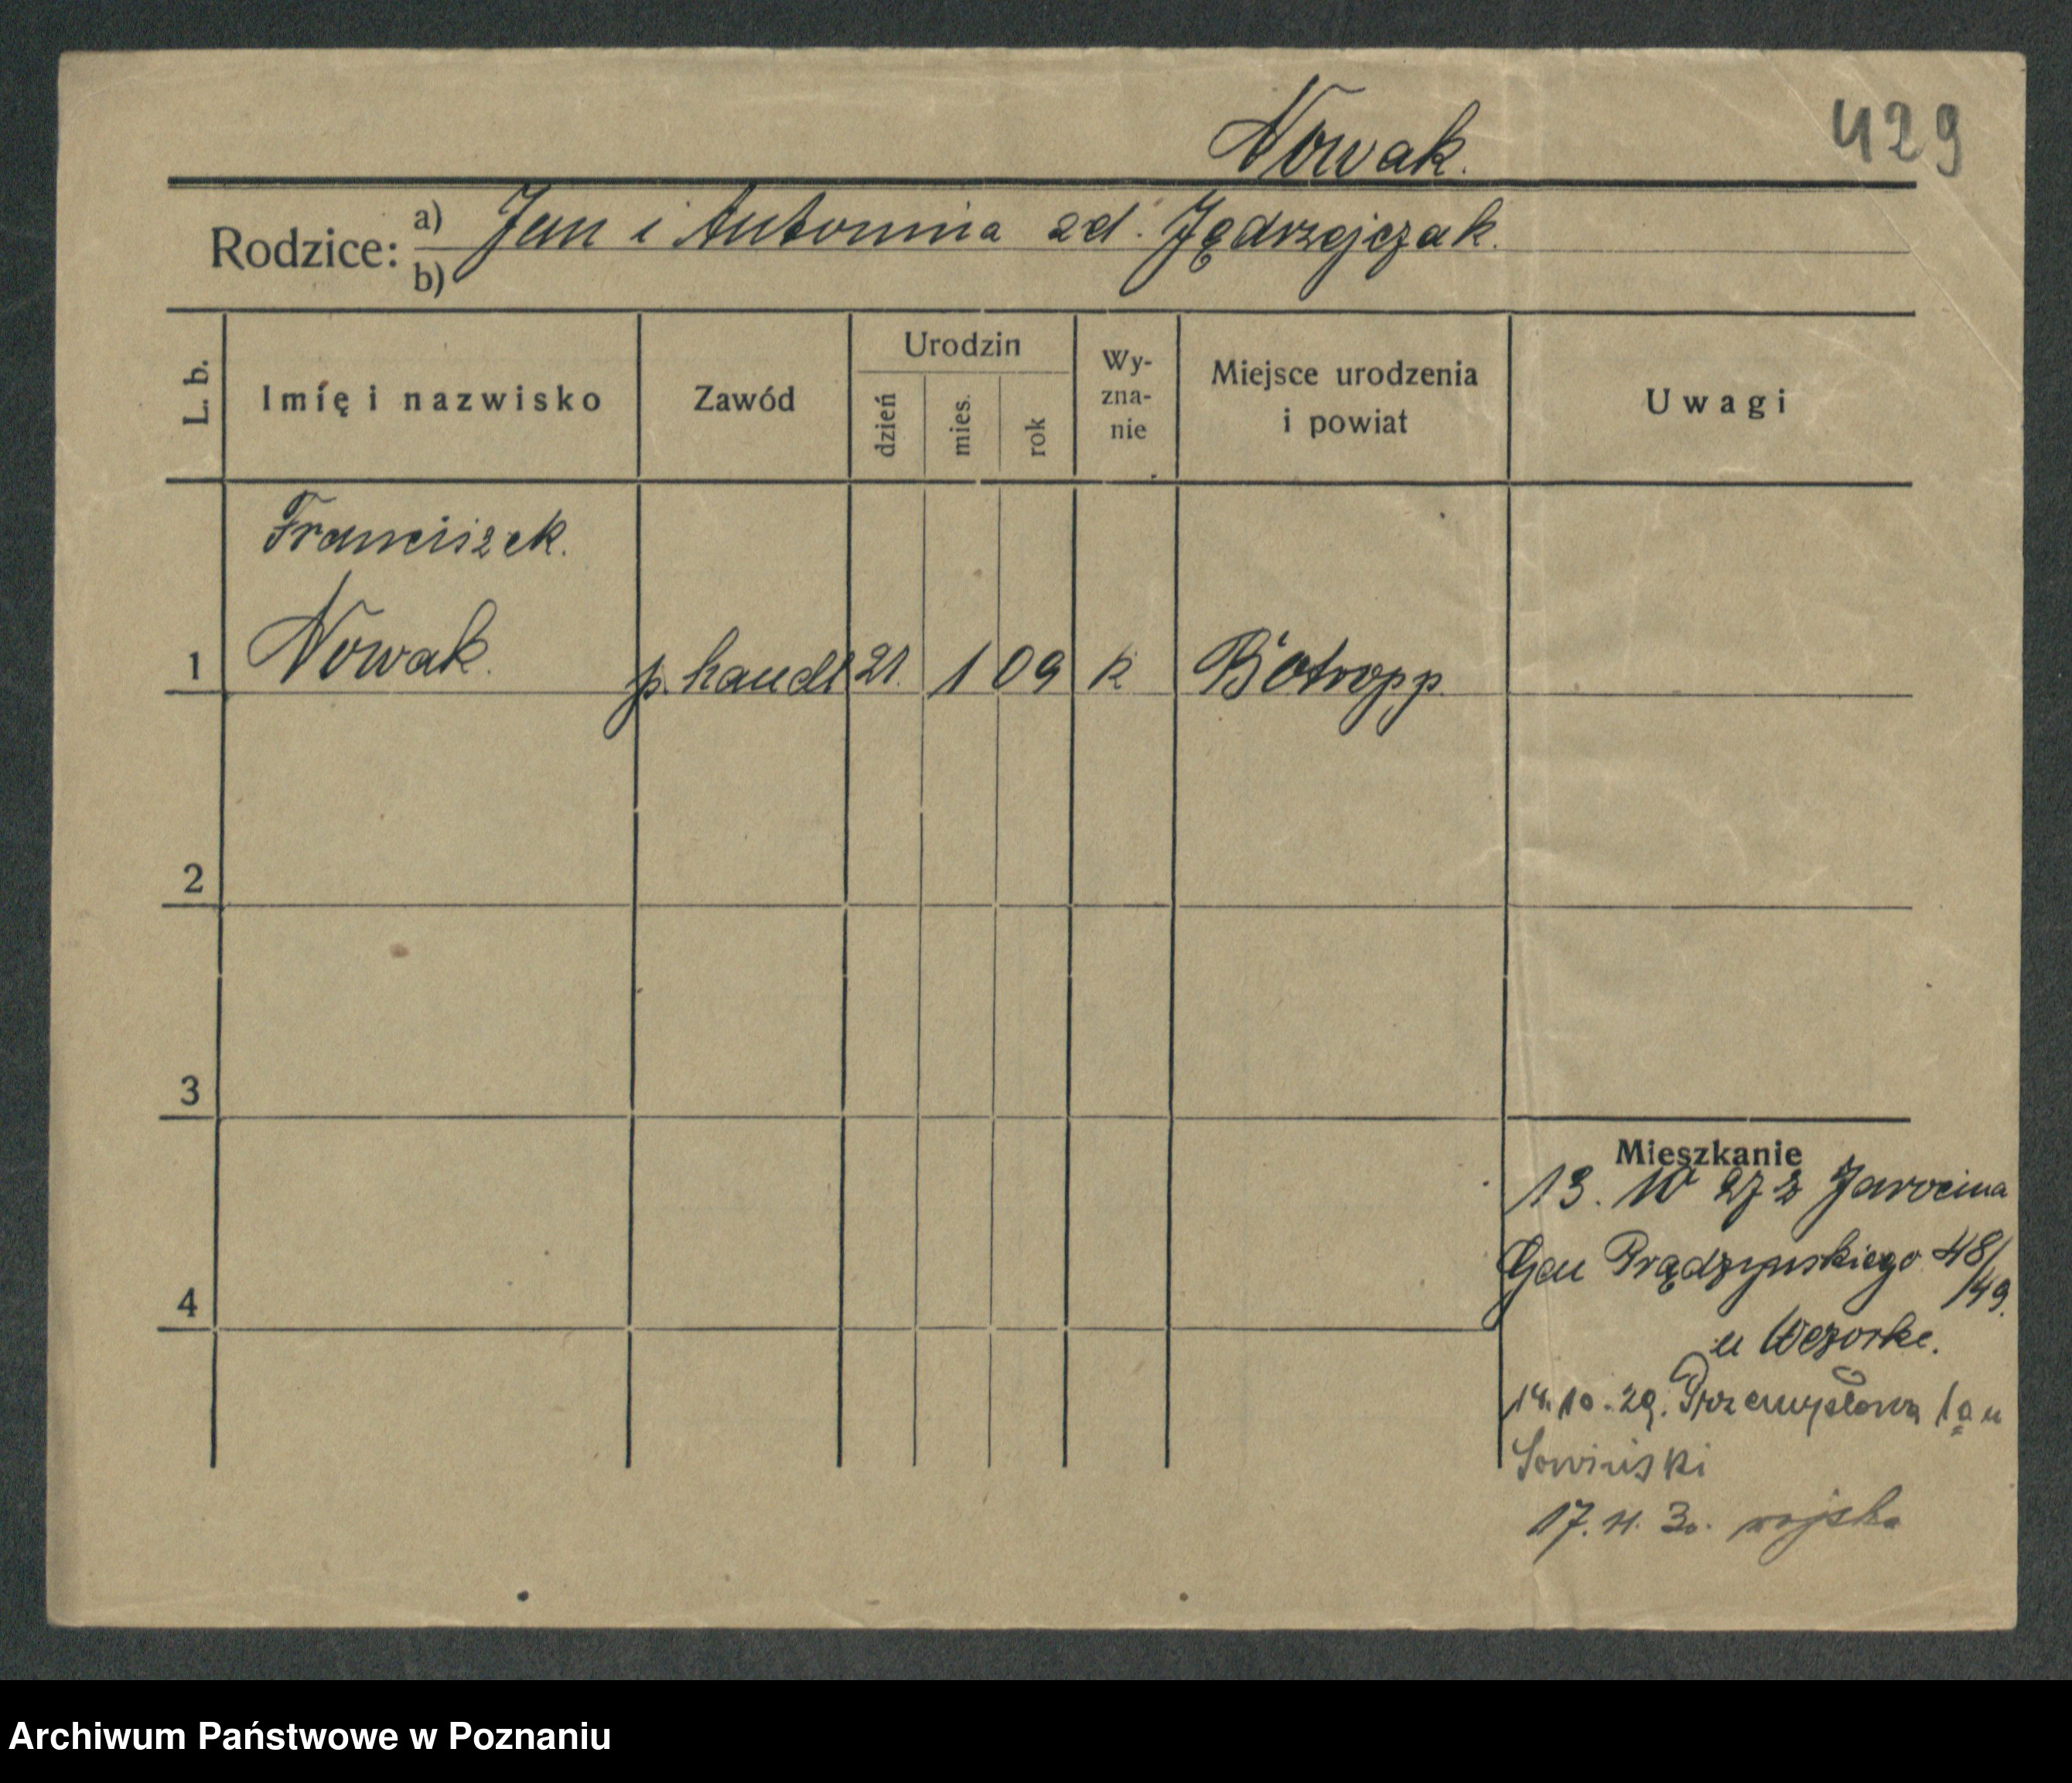 Nowak.
429
Rodzice: a) Jan i Antonina zd. Jędrzejczak.
b)
L. b.
Imię i nazwisko
Zawód
Urodzin
dzień
mies.
rok
Wy-
zna-
nie
Miejsce urodzenia
i powiat
Uwagi
Franciszek.
1 Nowak. p. handl 21. 1 09 k Botropp
2
3
4
Mieszkanie
13. 10 27 z Jarocina
Gen Prądzyńskiego 48/
/49.
u Wezorke.
14. 10. 29. Przemysłowa 1a u
Sowiński
17. 11. 30. wojska
Archiwum Państwowe w Poznaniu